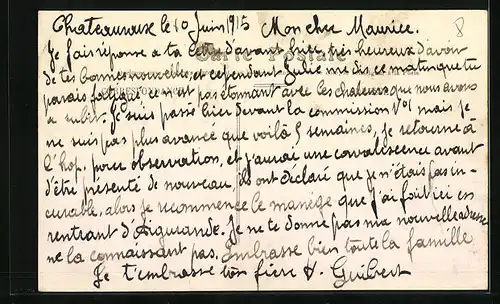 Chateauroux le 10 Juin 1915 Mon cher Maurice. 8
Je fais réponse a ta lettre d'avant hier, très heureux d'avoir
de tes bonnes nouvelles, et cependant Julie me dis ce matin que tu
parais fatigué ce n'est pas étonnant avec les chaleurs que nous avons
a subir. Je suis passé hier devant la commission No1 mais je
ne suis pas plus avancé que voilà 5 semaines, je retourne à
l'hop. pour observation, et j'aurai une convalescence avant
d'être présenté de nouveau, ils ont déclaré que je n'étais pas in-
curable, alors je recommence le manège que j'ai fait ici en
rentrant d'Aigurande. Je ne te donne pas ma nouvelle adresse
ne la connaissant pas. Embrasse bien toute la famille
Je t'embrasse ton frère Guibert
Carte Postale